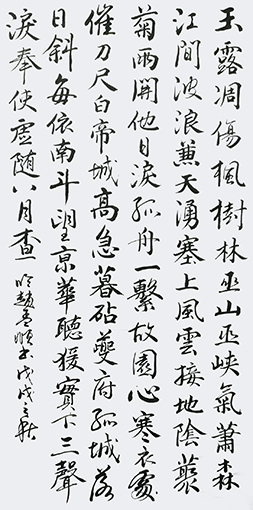 玉露凋傷楓樹林巫山巫峽氣蕭森
江間波浪兼天湧塞上風雲接地陰叢
菊兩開他日淚孤舟一繫故園心寒衣處
催刀尺白帝城高急暮砧夔府孤城落
日斜每依南斗望京華聽猿實下三聲
淚奉使虛隨八月查
臨趙孟頫書戊戌之秋